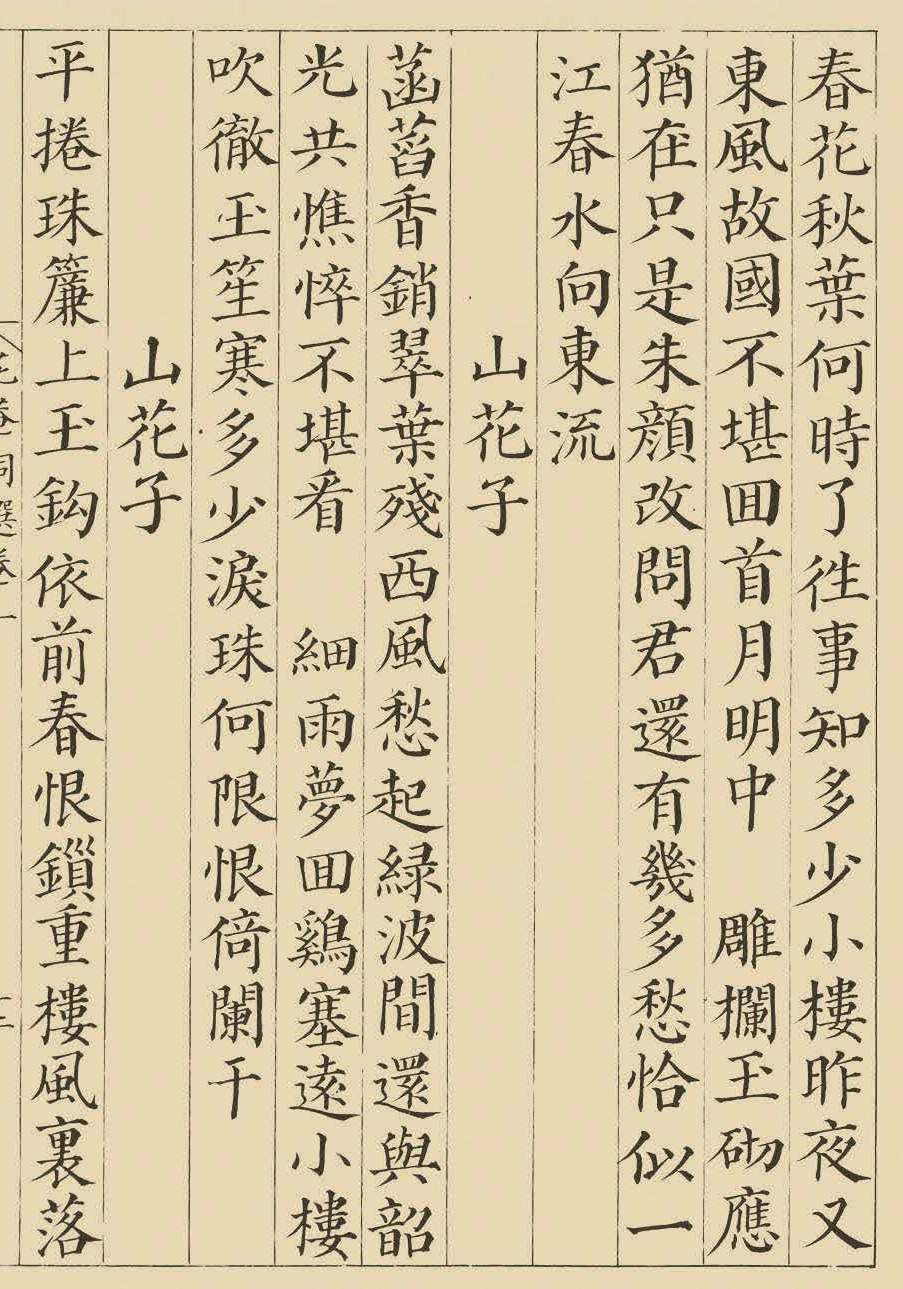 春花秋葉何時了徃事知多少小樓昨夜又
東風故國不堪囬首月明中　雕攔玉砌應
猶在只是朱顔改問君還有幾多愁恰似一
江春水向東流
山花子
菡萏香銷翠葉殘西風愁起緑波間還與韶
光共憔悴不堪看　細雨夢囬鷄塞遠小樓
吹徹玉笙寒多少淚珠何限恨倚闌干
山花子
平捲珠簾上玉鈎依前春恨鎻重樓風裏落